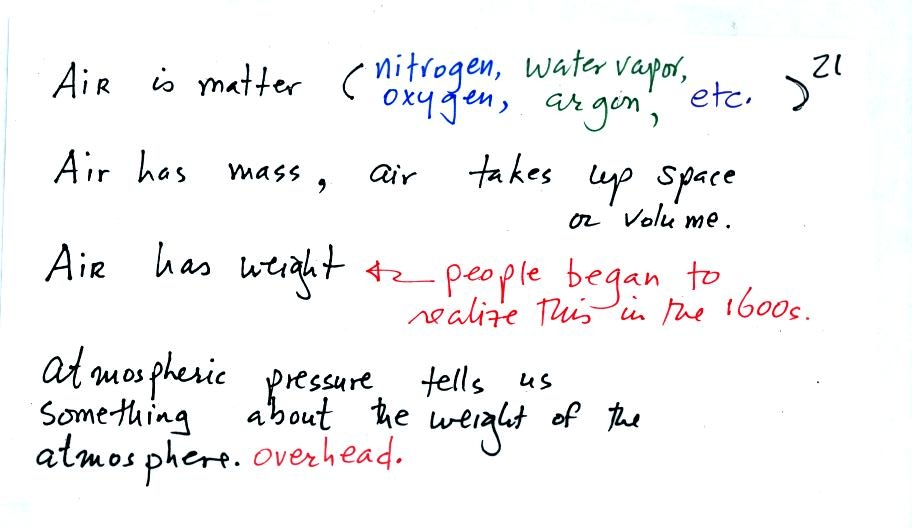 Air is matter (nitrogen, water vapor, oxygen, argon, etc.) 21
Air has mass, air takes up space
or volume.
Air has weight ← people began to
realize this in the 1600s.
atmospheric pressure tells us
something about the weight of the
atmosphere. overhead.